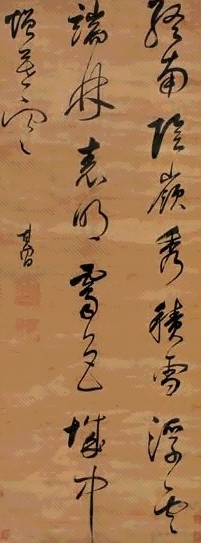 終南陰嶺秀積雪浮雲
端林表明霽色城中
增暮寒
其昌